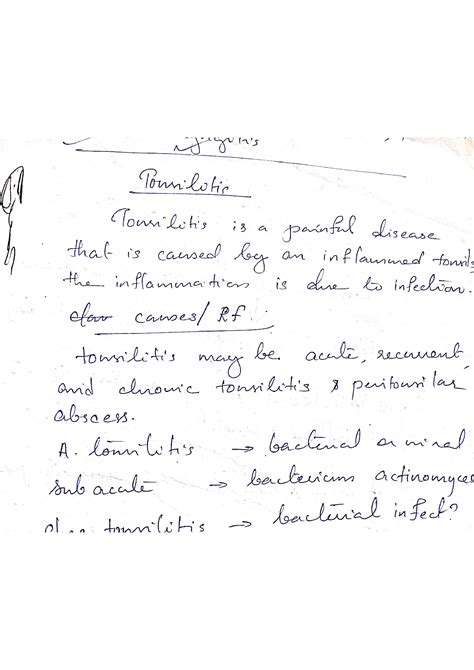 Tonsilotis
Tonsilotis is a painful disease
that is caused by an inflammed tonsils
the inflammation is due to infection.
causes/ Rf.
tonsilitis may be acute, recurrent
and chronic tonsilitis & peritonsilar
abscess.
A. tonsilitis → bacterial or viral
sub acute → bacterium actinomyces
tonsilitis → bacterial infect?